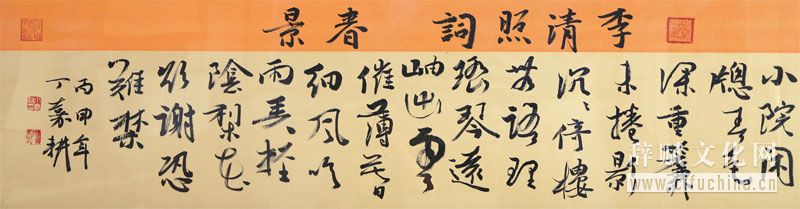 李清照詞 春景
小院閑
牕春色
深重簾
未捲影
沉〻倚樓
無語理
瑤琴遠
岫出雲
催薄暮
細風吹
雨弄輕
陰梨花
欲謝恐
難禁
丙申年
丁嘉耕
辞赋文化网